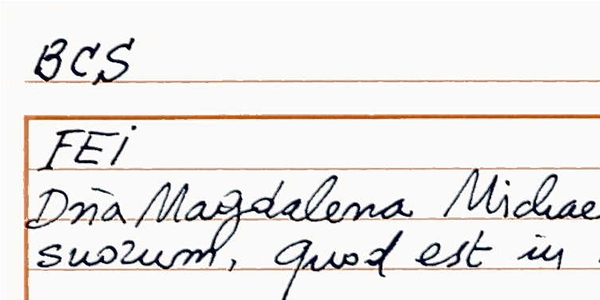 BCS
FEi
Dña Magdalena Michae
suorum, quod est in